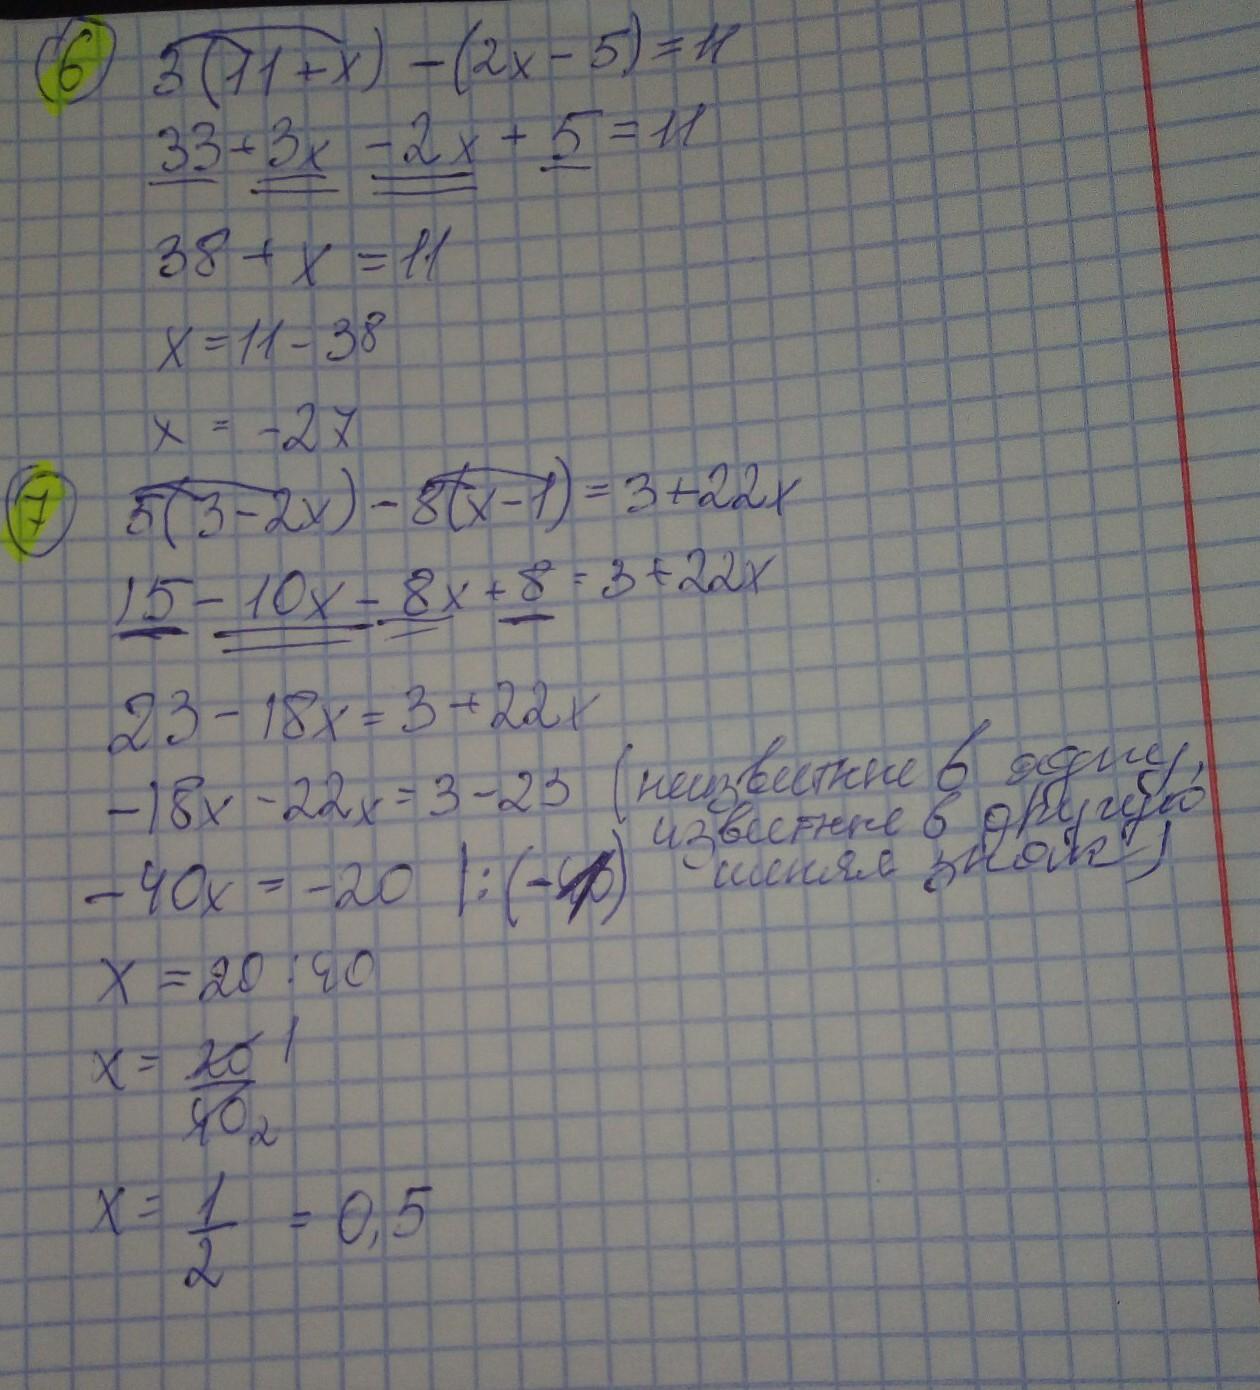 6 3(11+x) -(2x-5)=11
33+3x -2x+5=11
38+x=11
x=11-38
x=-27
7 5(3-2x)-8(x-1)=3+22x
15-10x-8x+8=3+22x
23-18x=3+22x
-18x-22x=3-23 (неизвестные в одну,
известные в другую
-40x=-20 |:(-40) меняя знак)
x=20:40
x=20/40 1 2
x=1/2=0,5